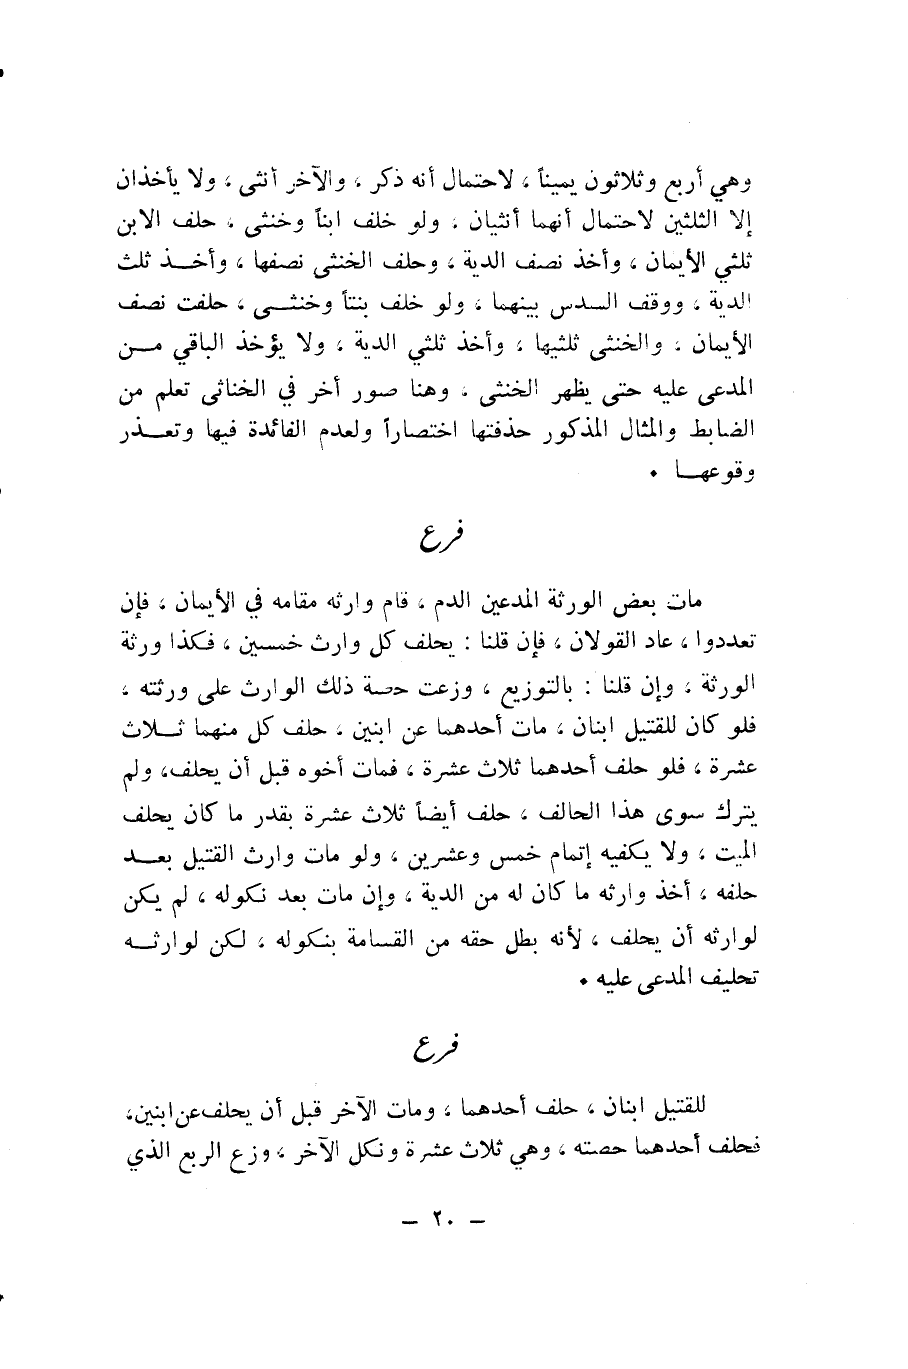 وهي أربع وثلاثون يميناً ، لاحتمال أنه ذكر ، والآخر أنثى ، ولا يأخذان
إلا الثلثين لاحتمال أنهما أنثيان . ولو خلف ابناً وخنثى ، حلف الابن
ثلثي الأيمان ، وأخذ نصف الدية ، وحلف الخنثى نصفها ، وأخـــذ ثلث
الدية ، ووقف السدس بينهما ، ولو خلف بنتاً وخنثــى ، حلفت نصف
الأيمان ، والخنثى ثلثيها ، وأخذ ثلثي الدية ، ولا يؤخذ الباقي مـــن
المدعى عليه حتى يظهر الخنثى . وهنا صور أخر في الخناثى تعلم من
الضابط والمثال المذكور حذفتها اختصاراً ولعدم الفائدة فيها وتعـــذر
وقوعهــا .
فرع
مات بعض الورثة المدعين الدم ، قام وارثه مقامه في الأيمان ، فإن
تعددوا ، عاد القولان ، فإن قلنا : يحلف كل وارث خمسين ، فكذا ورثة
الورثة ، وإن قلنا : بالتوزيع ، وزعت حصة ذلك الوارث على ورثته ،
فلو كان للقتيل ابنان ، مات أحدهما عن ابنين ، حلف كل منهما ثــلاث
عشرة ، فلو حلف أحدهما ثلاث عشرة ، فمات أخوه قبل أن يحلف، ولم
يترك سوى هذا الحالف ، حلف أيضاً ثلاث عشرة بقدر ما كان يحلف
الميت ، ولا يكفيه إتمام خمس وعشرين ، ولو مات وارث القتيل بعــد
حلفه ، أخذ وارثه ما كان له من الدية ، وإن مات بعد نكوله ، لم يكن
لوارثه أن يحلف ، لأنه بطل حقه من القسامة بنكوله ، لكن لوارثــه
تحليف المدعى عليه .
فرع
للقتيل ابنان ، حلف أحدهما ، ومات الآخر قبل أن يحلف عن ابنين،
فحلف أحدهما حصته ، وهي ثلاث عشرة ونكل الآخر ، وزع الربع الذي
– ٢٠ –